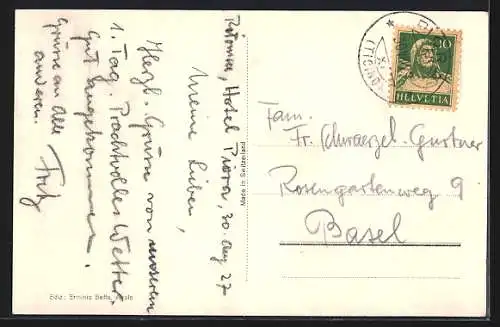 Ritomsee, Hotel Piora, 30. Aug 27
Meine Lieben,
Herzl. Grüsse von unserem
1. Tag. Prachtvolles Wetter.
Gut angekommen!
Grüsse an alle
anderen. Fritz
Ediz. Erminio Botta,
Made in Switzerland
PIORA
(TICINO)
10
HELVETIA
Fam.
Fr. Schwarzel-Gurtner
Rosengartenweg 9
Basel